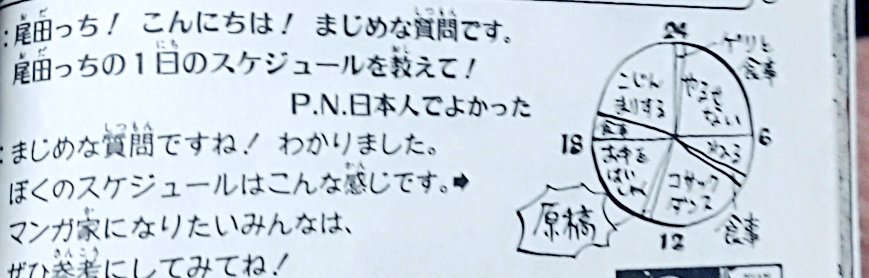 :尾田っち！ こんにちは！ まじめな質問です。
尾田っちの１日のスケジュールを教えて！
P.N.日本人でよかった
:まじめな質問ですね！ わかりました。
ぼくのスケジュールはこんな感じです。➡
マンガ家になりたいみんなは、
ぜひ参考にしてみてね！
24
ゲリと
食事
こじん
まりする
やるせ
ない
食事
18
6
ねる
お中を
はい
しゃく
コサック
ダンス
原稿
12
食事